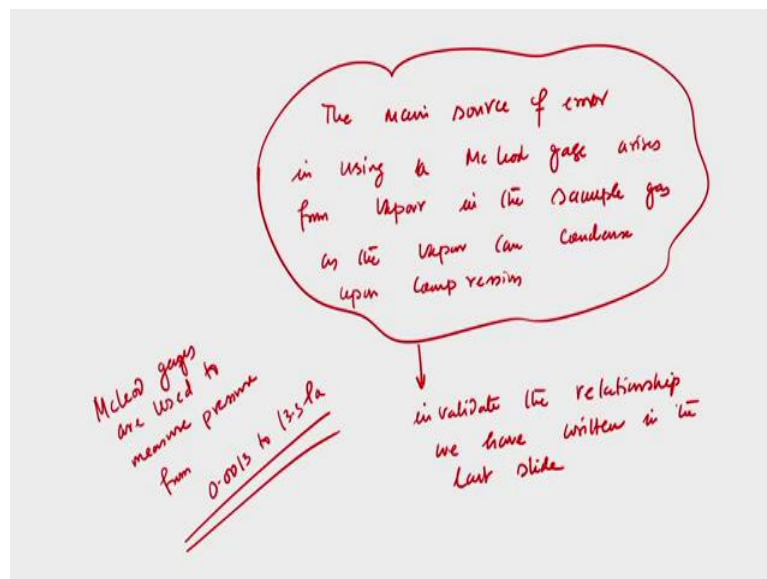 The main source of error
in using a McLeod gage arises
from vapor in the sample gas
as the vapor can condense
upon compression
invalidate the relationship
we have written in the
last slide
McLeod gages
are used to
measure pressure
from 0.0013 to 13.3 Pa